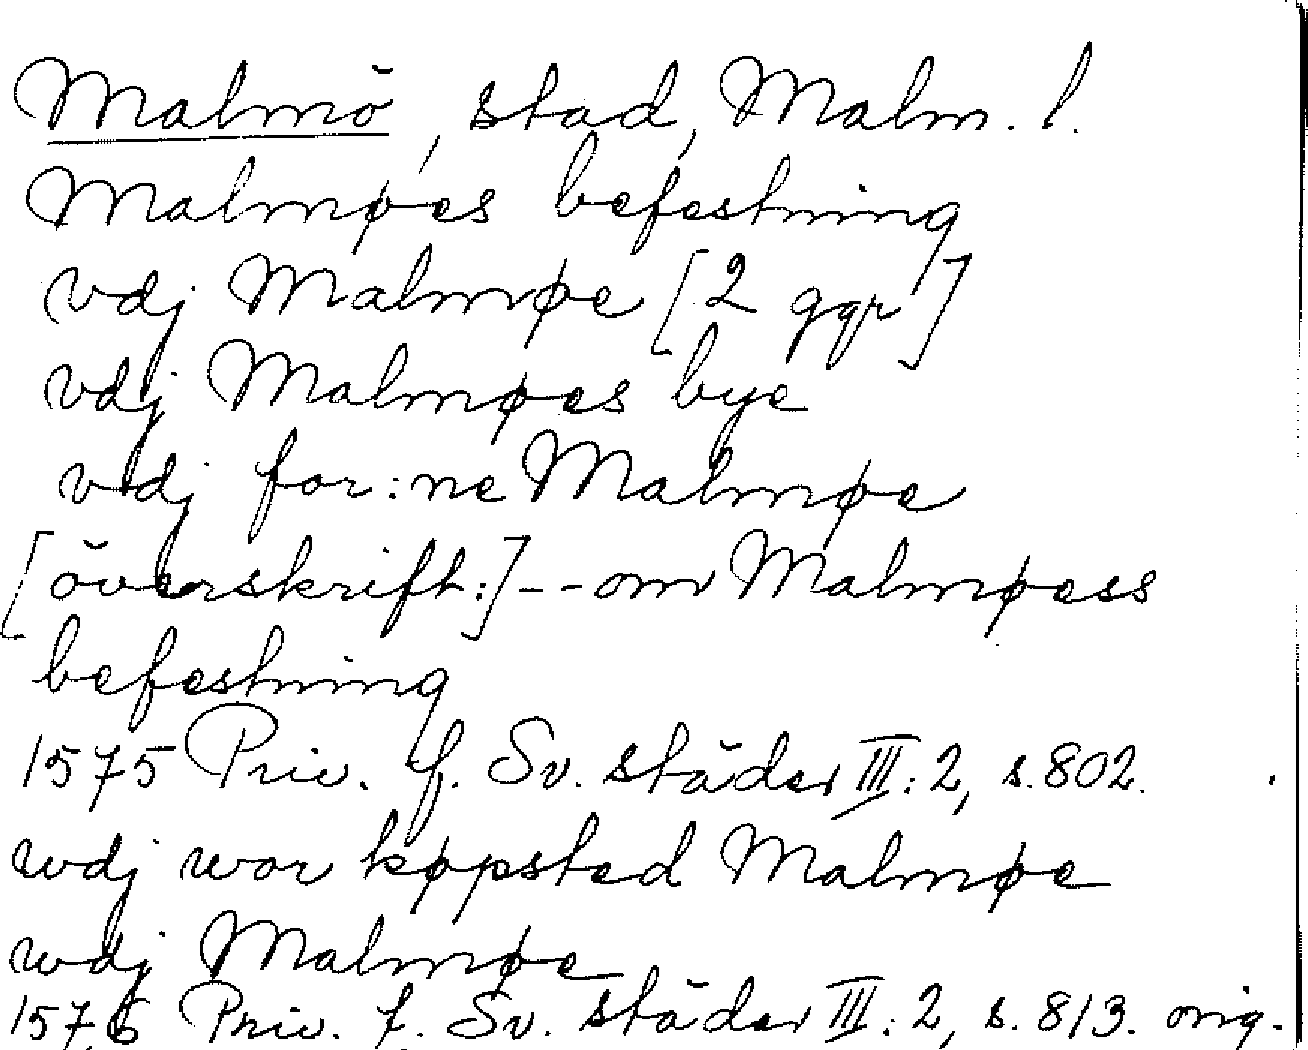 Malmö, stad, Malm. l.
Malmøes befestning
vdj Malmøe [2 ggr]
vdj Malmøes bye
vdj for:ne Malmøe
[överskrift:] -- om Malmøess
befestning
1575 Priv. f. Sv. städer III: 2, s. 802.
wdj wor køpsted Malmøe
wdj Malmøe
1576 Priv. f. Sv. städer III: 2, s. 813. orig.